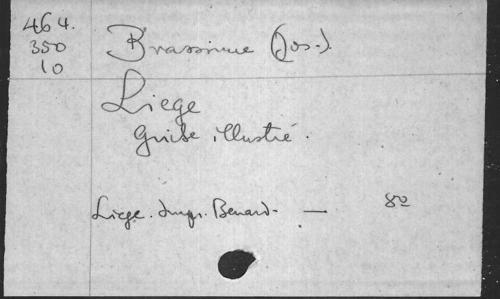 464.
350
10
Brassinne (Jos.)
Liege
Guide illustré.
Liege. Impr. Benard. — 8º